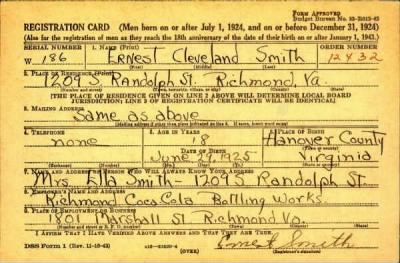 Form Approved
Budget Bureau No. 33-R012-43
REGISTRATION CARD (Men born on or after July 1, 1924, and on or before December 31, 1924)
(Also for the registration of men as they reach the 18th anniversary of the date of their birth on or after January 1, 1943.)
SERIAL NUMBER 1. NAME (Print) ORDER NUMBER
W 186 Ernest Cleveland Smith 12432
2. PLACE OF RESIDENCE (Print)
1209 S. Randolph St. Richmond, Va
[THE PLACE OF RESIDENCE GIVEN ON LINE 2 ABOVE WILL DETERMINE LOCAL BOARD
JURISDICTION; LINE 2 OF REGISTRATION CERTIFICATE WILL BE IDENTICAL]
3. MAILING ADDRESS
Same as above
[Mailing address if other than place indicated on line 2. If same, insert word same]
4. TELEPHONE 5. AGE IN YEARS 6. PLACE OF BIRTH
none 18 Hanover County
DATE OF BIRTH
June 29, 1925 Virginia
7. NAME AND ADDRESS OF PERSON WHO WILL ALWAYS KNOW YOUR ADDRESS
Mrs. Ella Smith 1209 S Randolph St.
8. EMPLOYER'S NAME AND ADDRESS
Richmond Coca Cola Bottling Works.
9. PLACE OF EMPLOYMENT OR BUSINESS
1801 Marshall St. Richmond, Va.
I AFFIRM THAT I HAVE VERIFIED ABOVE ANSWERS AND THAT THEY ARE TRUE.
DSS Form 1 (Rev. 11-16-42) (OVER) Ernest Smith